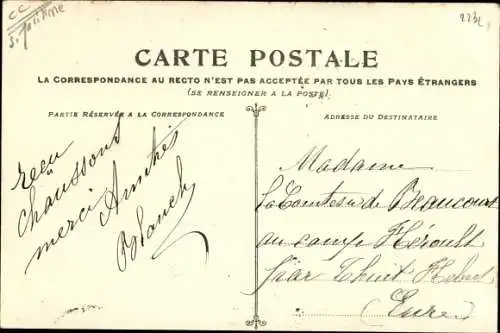 CC
S. Maritime
223L
CARTE POSTALE
LA CORRESPONDANCE AU RECTO N'EST PAS ACCEPTÉE PAR TOUS LES PAYS ÉTRANGERS
(SE RENSEIGNER A LA POSTE)
PARTIE RÉSERVÉE A LA CORRESPONDANCE
ADRESSE DU DESTINATAIRE
reçu
chaussons
merci Amitiés
Blanche
Madame
la Comtesse de Beaucourt
au camp Héroult
par Thuit Hebert
(Eure)